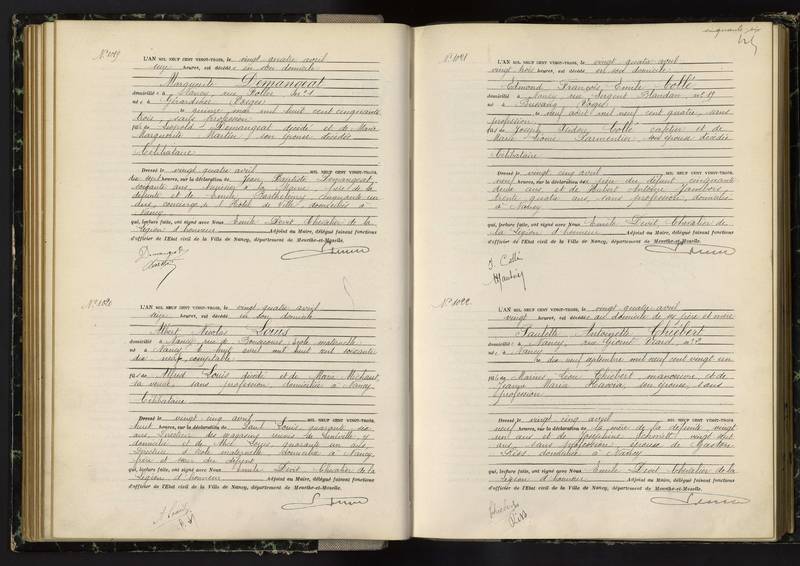 N° 1019
L'AN MIL NEUF CENT VINGT-TROIS, le vingt quatre avril
onze heures, est décédée en son domicile
Marguerite Demangeat
domiciliée à Nancy, rue Poller n° 1
née à Gérardmer (Vosges)
le quinze mai mil huit cent cinquante
trois, sans profession
fille de Léopold Demangeat décédé et de Marie
Marguerite Martin son épouse décédée
Célibataire
Dressé le vingt quatre avril MIL NEUF CENT VINGT-TROIS,
dix sept heures, sur la déclaration de Jean Baptiste Demangeat,
soixante ans, frère de la
défunte et de Emile Barthélemy, cinquante un
ans, concierge à l'Hôtel de Ville, domiciliés à
Nancy
qui, lecture faite, ont signé avec Nous Emile Devit Chevalier de la
Légion d'honneur Adjoint au Maire, délégué faisant fonctions
d'officier de l'Etat civil de la Ville de Nancy, département de Meurthe-et-Moselle.
Demangeat
N° 1020
L'AN MIL NEUF CENT VINGT-TROIS, le vingt quatre avril
onze heures, est décédé en son domicile
Albert Nicolas Louis
domicilié à Nancy, rue de Bonsecours, école maternelle
né à Nancy le huit avril mil huit cent soixante
dix neuf, comptable
fils de Alfred Louis décédé et de Marie Michaut
sa veuve, sans profession, domiciliée à Nancy
Célibataire
Dressé le vingt cinq avril MIL NEUF CENT VINGT-TROIS,
huit heures, sur la déclaration de Paul Louis quarante six
ans, Directeur des magasins réunis de Lunéville, y
domicilié et de Louis quarante un ans,
Directrice d'école maternelle domiciliée à Nancy,
frère et sœur du défunt
qui, lecture faite, ont signé avec Nous Emile Devit Chevalier de la
Légion d'honneur Adjoint au Maire, délégué faisant fonctions
d'officier de l'Etat civil de la Ville de Nancy, département de Meurthe-et-Moselle.
cinquante six
N° 1021
L'AN MIL NEUF CENT VINGT-TROIS, le vingt quatre avril
vingt trois heures, est décédé en son domicile
Edmond François Emile Collé
domicilié à Nancy rue Sergent Blandan n° 19
né à Bussang (Vosges)
le neuf août mil neuf cent quatre, sans
profession
fils de Joseph Collé cafetier et de
Marie Louise Parmentier, son épouse décédée
Célibataire
Dressé le vingt cinq avril MIL NEUF CENT VINGT-TROIS,
neuf heures, sur la déclaration du père du défunt cinquante
deux ans et de Hubert Antoine
trente quatre ans, sans profession, domiciliés
à Nancy
qui, lecture faite, ont signé avec Nous Emile Devit Chevalier de
la Légion d'honneur Adjoint au Maire, délégué faisant fonctions
d'officier de l'Etat civil de la Ville de Nancy, département de Meurthe-et-Moselle.
J. Collé
N° 1022
L'AN MIL NEUF CENT VINGT-TROIS, le vingt quatre avril
vingt heures, est décédée au domicile de ses père et mère
Paulette Antoinette Thiébert
domiciliée à Nancy, rue n° 2
née à Nancy
le dix neuf septembre mil neuf cent vingt un
fille de Marius Léon Thiébert manœuvre et de
Jeanne Maria son épouse, sans
profession
Dressé le vingt cinq avril MIL NEUF CENT VINGT-TROIS,
neuf heures, sur la déclaration de la mère de la défunte, vingt
un ans et de Joséphine vingt sept
ans, sans profession, épouse de Gaston
domiciliées à Nancy
qui, lecture faite, ont signé avec Nous Emile Devit Chevalier de la
Légion d'honneur Adjoint au Maire, délégué faisant fonctions
d'officier de l'Etat civil de la Ville de Nancy, département de Meurthe-et-Moselle.
Thiébert